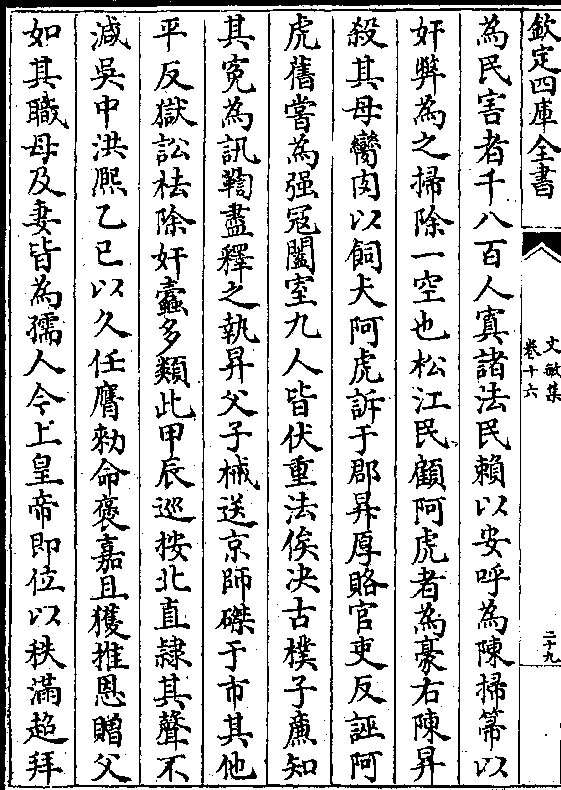 欽定四庫全書
文敏集
卷十六
二十九
為民害者千八百人寘諸法民賴以安呼為陳掃箒以
奸弊為之掃除一空也松江民顧阿虎者為豪右陳昇
殺其母臠肉以飼犬阿虎訴于郡昇厚賂官吏反誣阿
虎舊嘗為强冦闔室九人皆伏重法俟决古樸子廉知
其寃為訊鞫盡釋之執昇父子械送京師磔于市其他
平反獄訟袪除奸蠧多類此甲辰巡按北直隸其聲不
減吳中洪熈乙巳以久任膺勑命褒嘉且獲推恩贈父
如其職母及妻皆為孺人今上皇帝即位以秩滿超拜